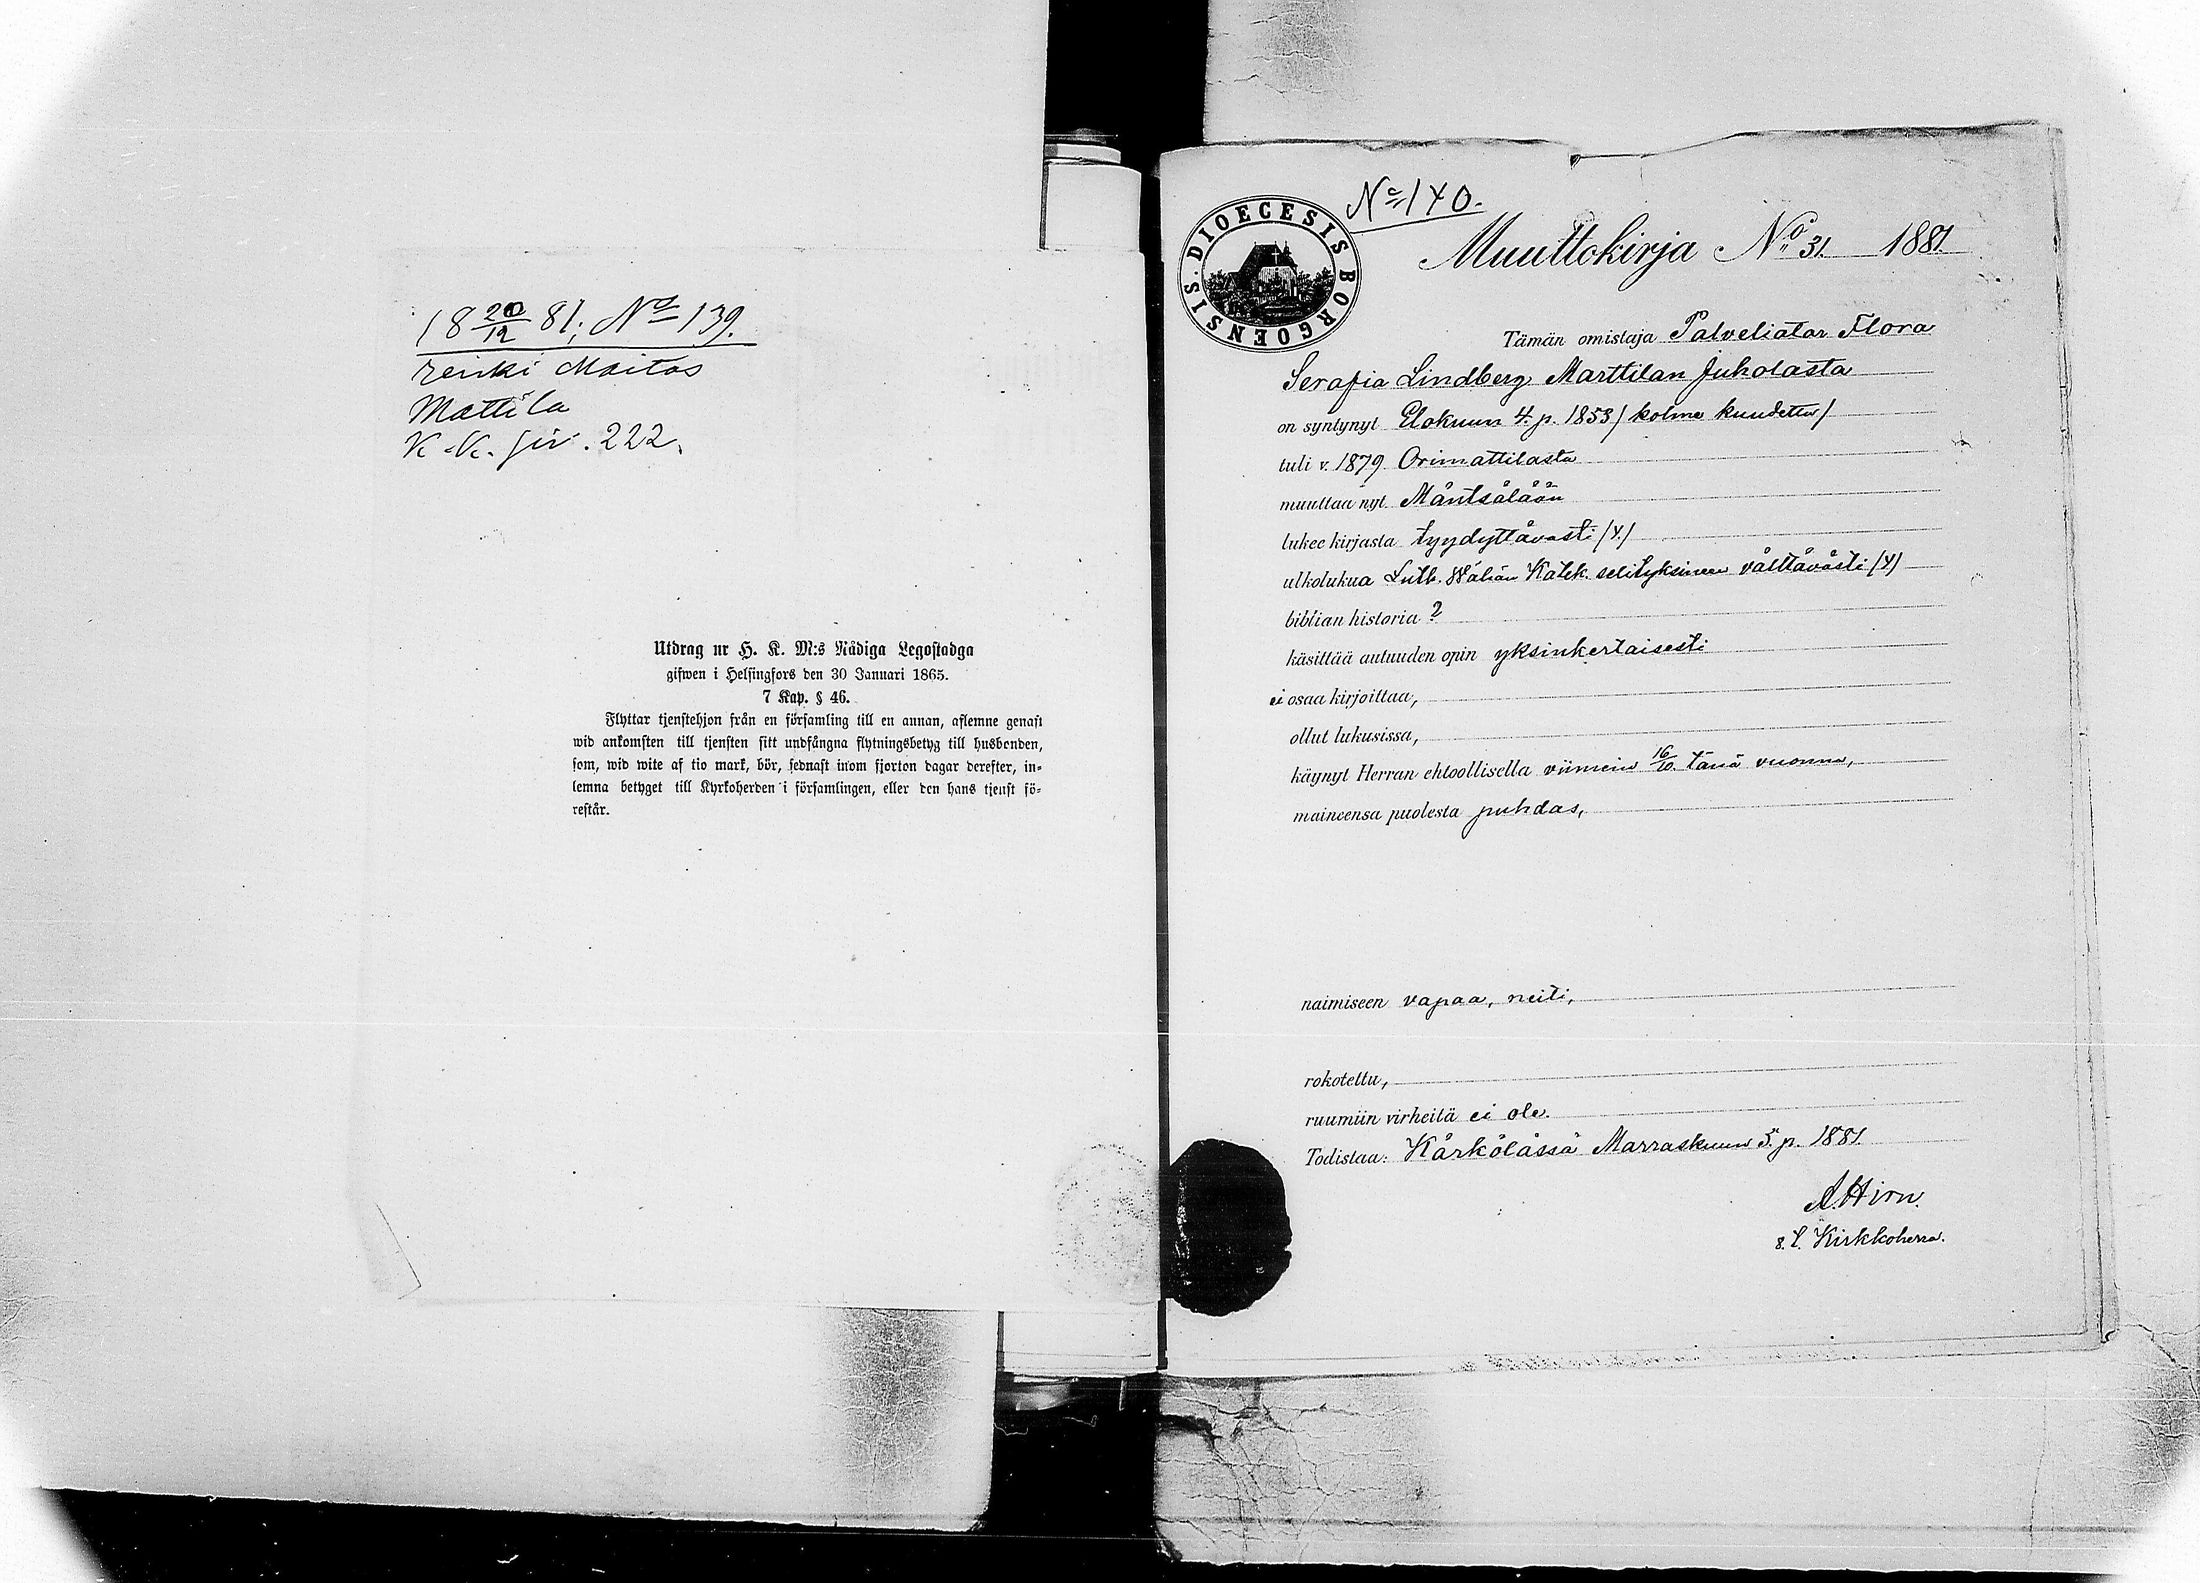 18 20/12 81; No 139.
renki Maitas
Mattila
K.K. siv. 222.
Utdrag ur H. K. M:s Nådiga Legostadga
gifwen i Helsingfors den 30 Januari 1865.
7 Kap. § 46.
Flyttar tjenstehjon från en församling till en annan, aflemne genast
wid ankomsten till tjensten sitt undfångna flytningsbetyg till husbonden,
som, wid wite af tio mark, bör, sednast inom fjorton dagar derefter, in-
lemna betyget till Kyrkoherden i församlingen, eller den hans tjenst fö-
restår.
No 140.
DIOECESIS BORGOENSIS.
Muuttokirja No 31. 1881.
Tämän omistaja Palveliatar Flora
Serafia Lindberg Marttilan Juholasta
on syntynyt Elokuun 4. p. 1853 / kolme kuudetta /
tuli v. 1879 Orimattilasta
muuttaa nyt Mäntsälään
lukee kirjasta tyydyttävästi (4.)
ulkolukua Luth. Wähän Katek. selityksineen välttävästi (4)
biblian historia ?
käsittää autuuden opin yksinkertaisesti
ei osaa kirjoittaa,
ollut lukusissa,
käynyt Herran ehtoollisella viimein 16/10. tänä vuonna,
maineensa puolesta puhdas,
naimiseen vapaa, neiti,
rokotettu,
ruumiin virheitä ei ole.
Todistaa: Kärkölässä Marraskuun 5. p. 1881.
A. Hirn.
Kirkkoherra.